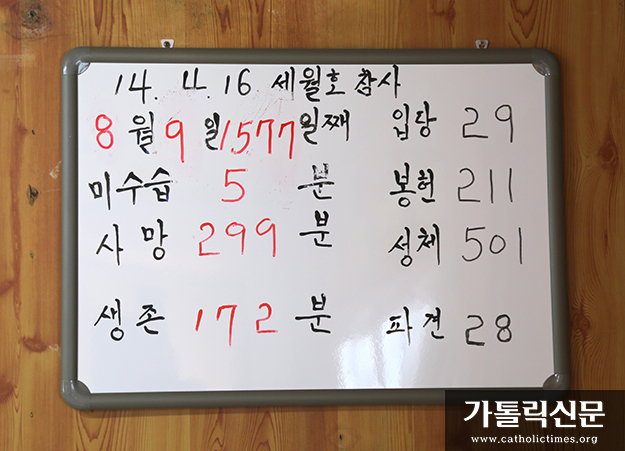 14. 4. 16 세월호 참사
8월 9일 1577일째 입당 29
미수습 5 분 봉헌 211
사망 299 분 성체 501
생존 172 분 파견 28
가톨릭신문
www.catholictimes.org